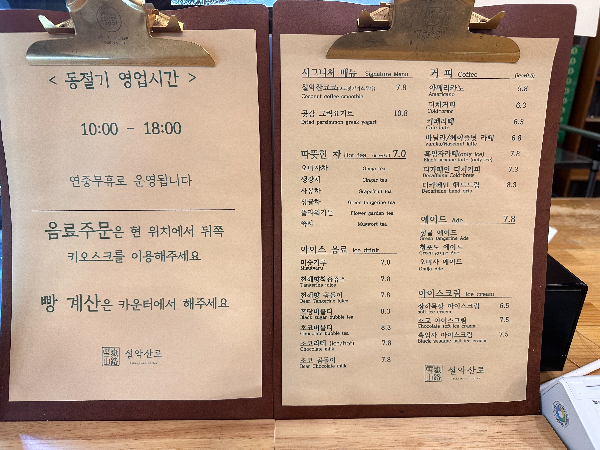 < 동절기 영업시간 >
10:00 - 18:00
연중무휴로 운영됩니다
음료주문은 현 위치에서 뒤쪽
키오스크를 이용해주세요
빵 계산은 카운터에서 해주세요
설악산로
시그니처 메뉴 Signature Menu
7.8
Coconut coffee smoothie
곶감 그릭요거트 10.8
Dried persimmon greek yogurt
따뜻한 차 Hot tea 7.0
오미자차 Omija tea
생강차 Ginger tea
자몽차 Grapefruit tea
청귤차 Green tangerine tea
플라워가든 Flower garden tea
쑥차 Mugwort tea
아이스 음료 Ice drink
미숫가루 7.0
Misutgaru
7.8
Tangerine juice
7.8
흑당버블티 8.3
Black sugar bubble tea
초코버블티 8.3
Chocolate bubble tea
초코라떼 (ice/hot) 7.8
Chocolate milk
초코 곰돌이 7.8
Bear Chocolate milk
커 피 Coffee
아메리카노 5.8
Americano
더치커피 6.3
Coldbrew
카페라떼 6.3
Cafe latte
바닐라/헤이즐넛 라떼 6.8
Vanilla/Hazelnut latte
흑임자라떼(only ice) 7.8
Black sesame latte (only ice)
디카페인 더치커피 7.3
Decaffeine Coldbrew
디카페인 핸드드립 8.3
Decaffeine hand drip
에이드 Ade 7.8
청귤 에이드
Green tangerine Ade
청포도 에이드
Green grape Ade
오미자 에이드
Omija Ade
아이스크림 Ice cream
상하목장 아이스크림 6.5
Soft ice cream
초코 아이스크림 7.5
Chocolate soft ice cream
흑임자 아이스크림 7.5
Black sesame soft ice cream
설악산로